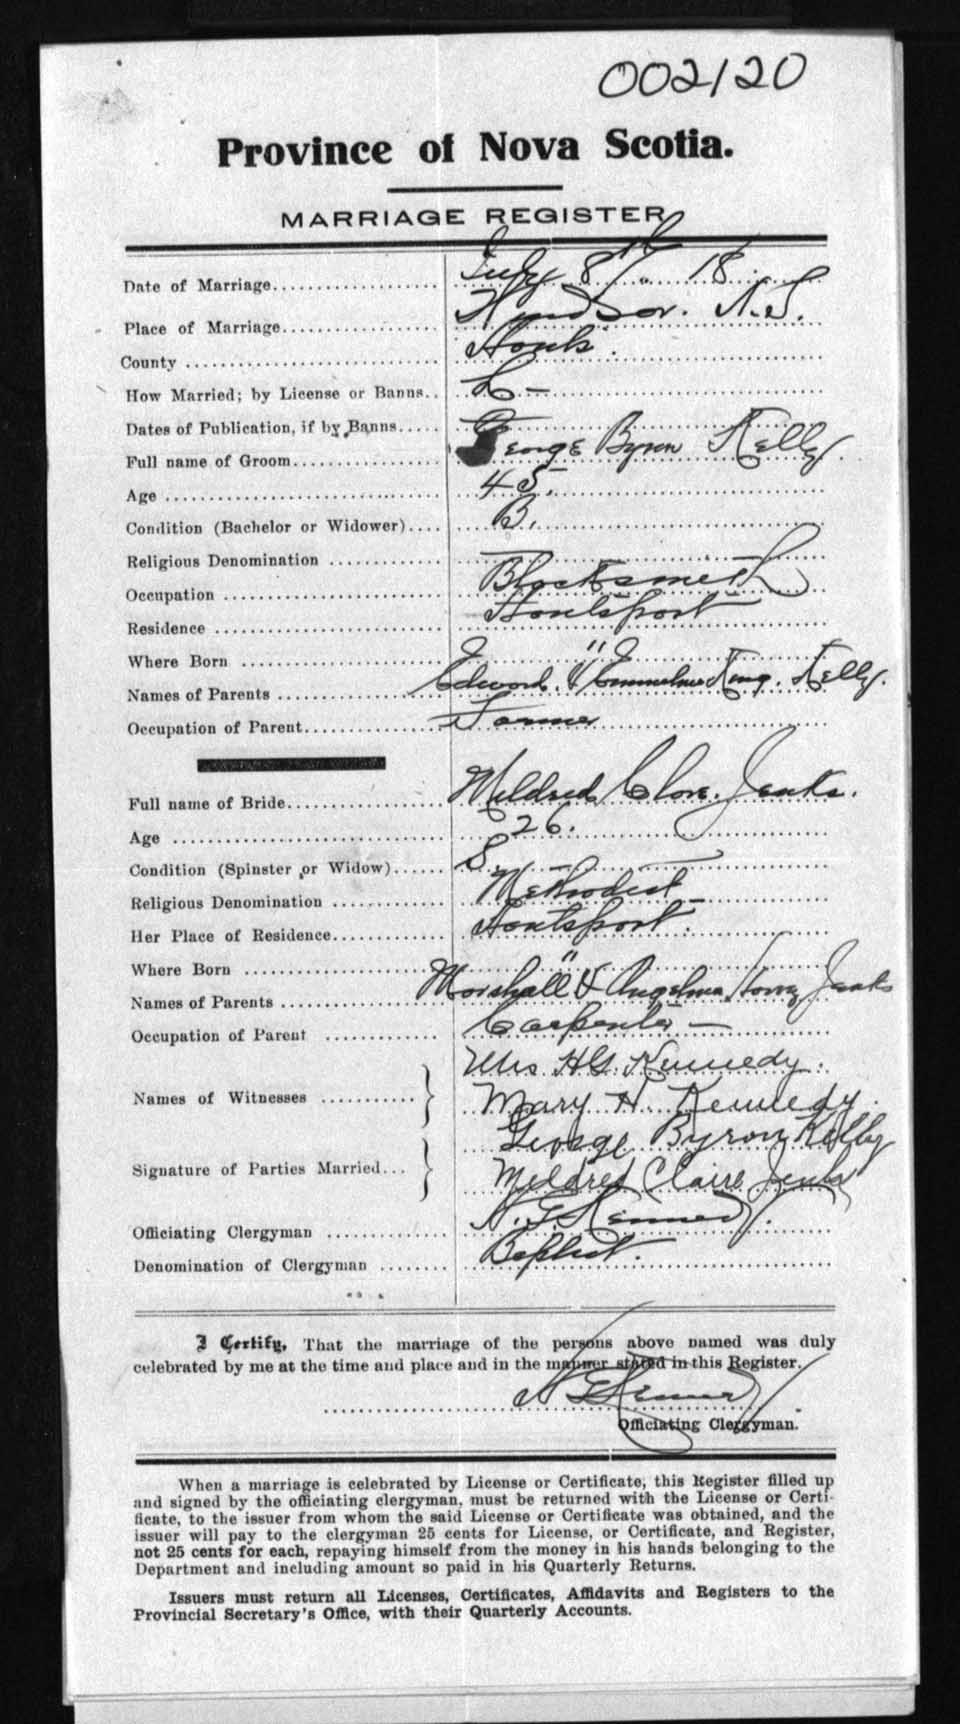 002120
Province of Nova Scotia.
MARRIAGE REGISTER
Date of Marriage July 8th " 18
Place of Marriage Windsor. N.S.
County Hants.
How Married; by License or Banns L -
Dates of Publication, if by Banns
Full name of Groom George Byron Kelly.
Age 45.
Condition (Bachelor or Widower) B.
Religious Denomination
Occupation Blacksmith
Residence Hantsport
Where Born "
Names of Parents Edward & King Kelly.
Occupation of Parent Farmer
Full name of Bride Mildred Jenks.
Age 26.
Condition (Spinster or Widow) S
Religious Denomination Methodist
Her Place of Residence Hantsport.
Where Born "
Names of Parents Marshall & Jenks
Occupation of Parent Carpenter -
Names of Witnesses Mrs H.G. Kennedy.
Mary H. Kennedy.
Signature of Parties Married George Byron Kelly
Mildred Claire Jenks
Officiating Clergyman H. G. Kennedy.
Denomination of Clergyman Baptist.
I Certify, That the marriage of the persons above named was duly
celebrated by me at the time and place and in the manner stated in this Register.
H G Kennedy
Officiating Clergyman.
When a marriage is celebrated by License or Certificate, this Register filled up
and signed by the officiating clergyman, must be returned with the License or Certi-
ficate, to the issuer from whom the said License or Certificate was obtained, and the
issuer will pay to the clergyman 25 cents for License, or Certificate, and Register,
not 25 cents for each, repaying himself from the money in his hands belonging to the
Department and including amount so paid in his Quarterly Returns.
Issuers must return all Licenses, Certificates, Affidavits and Registers to the
Provincial Secretary's Office, with their Quarterly Accounts.